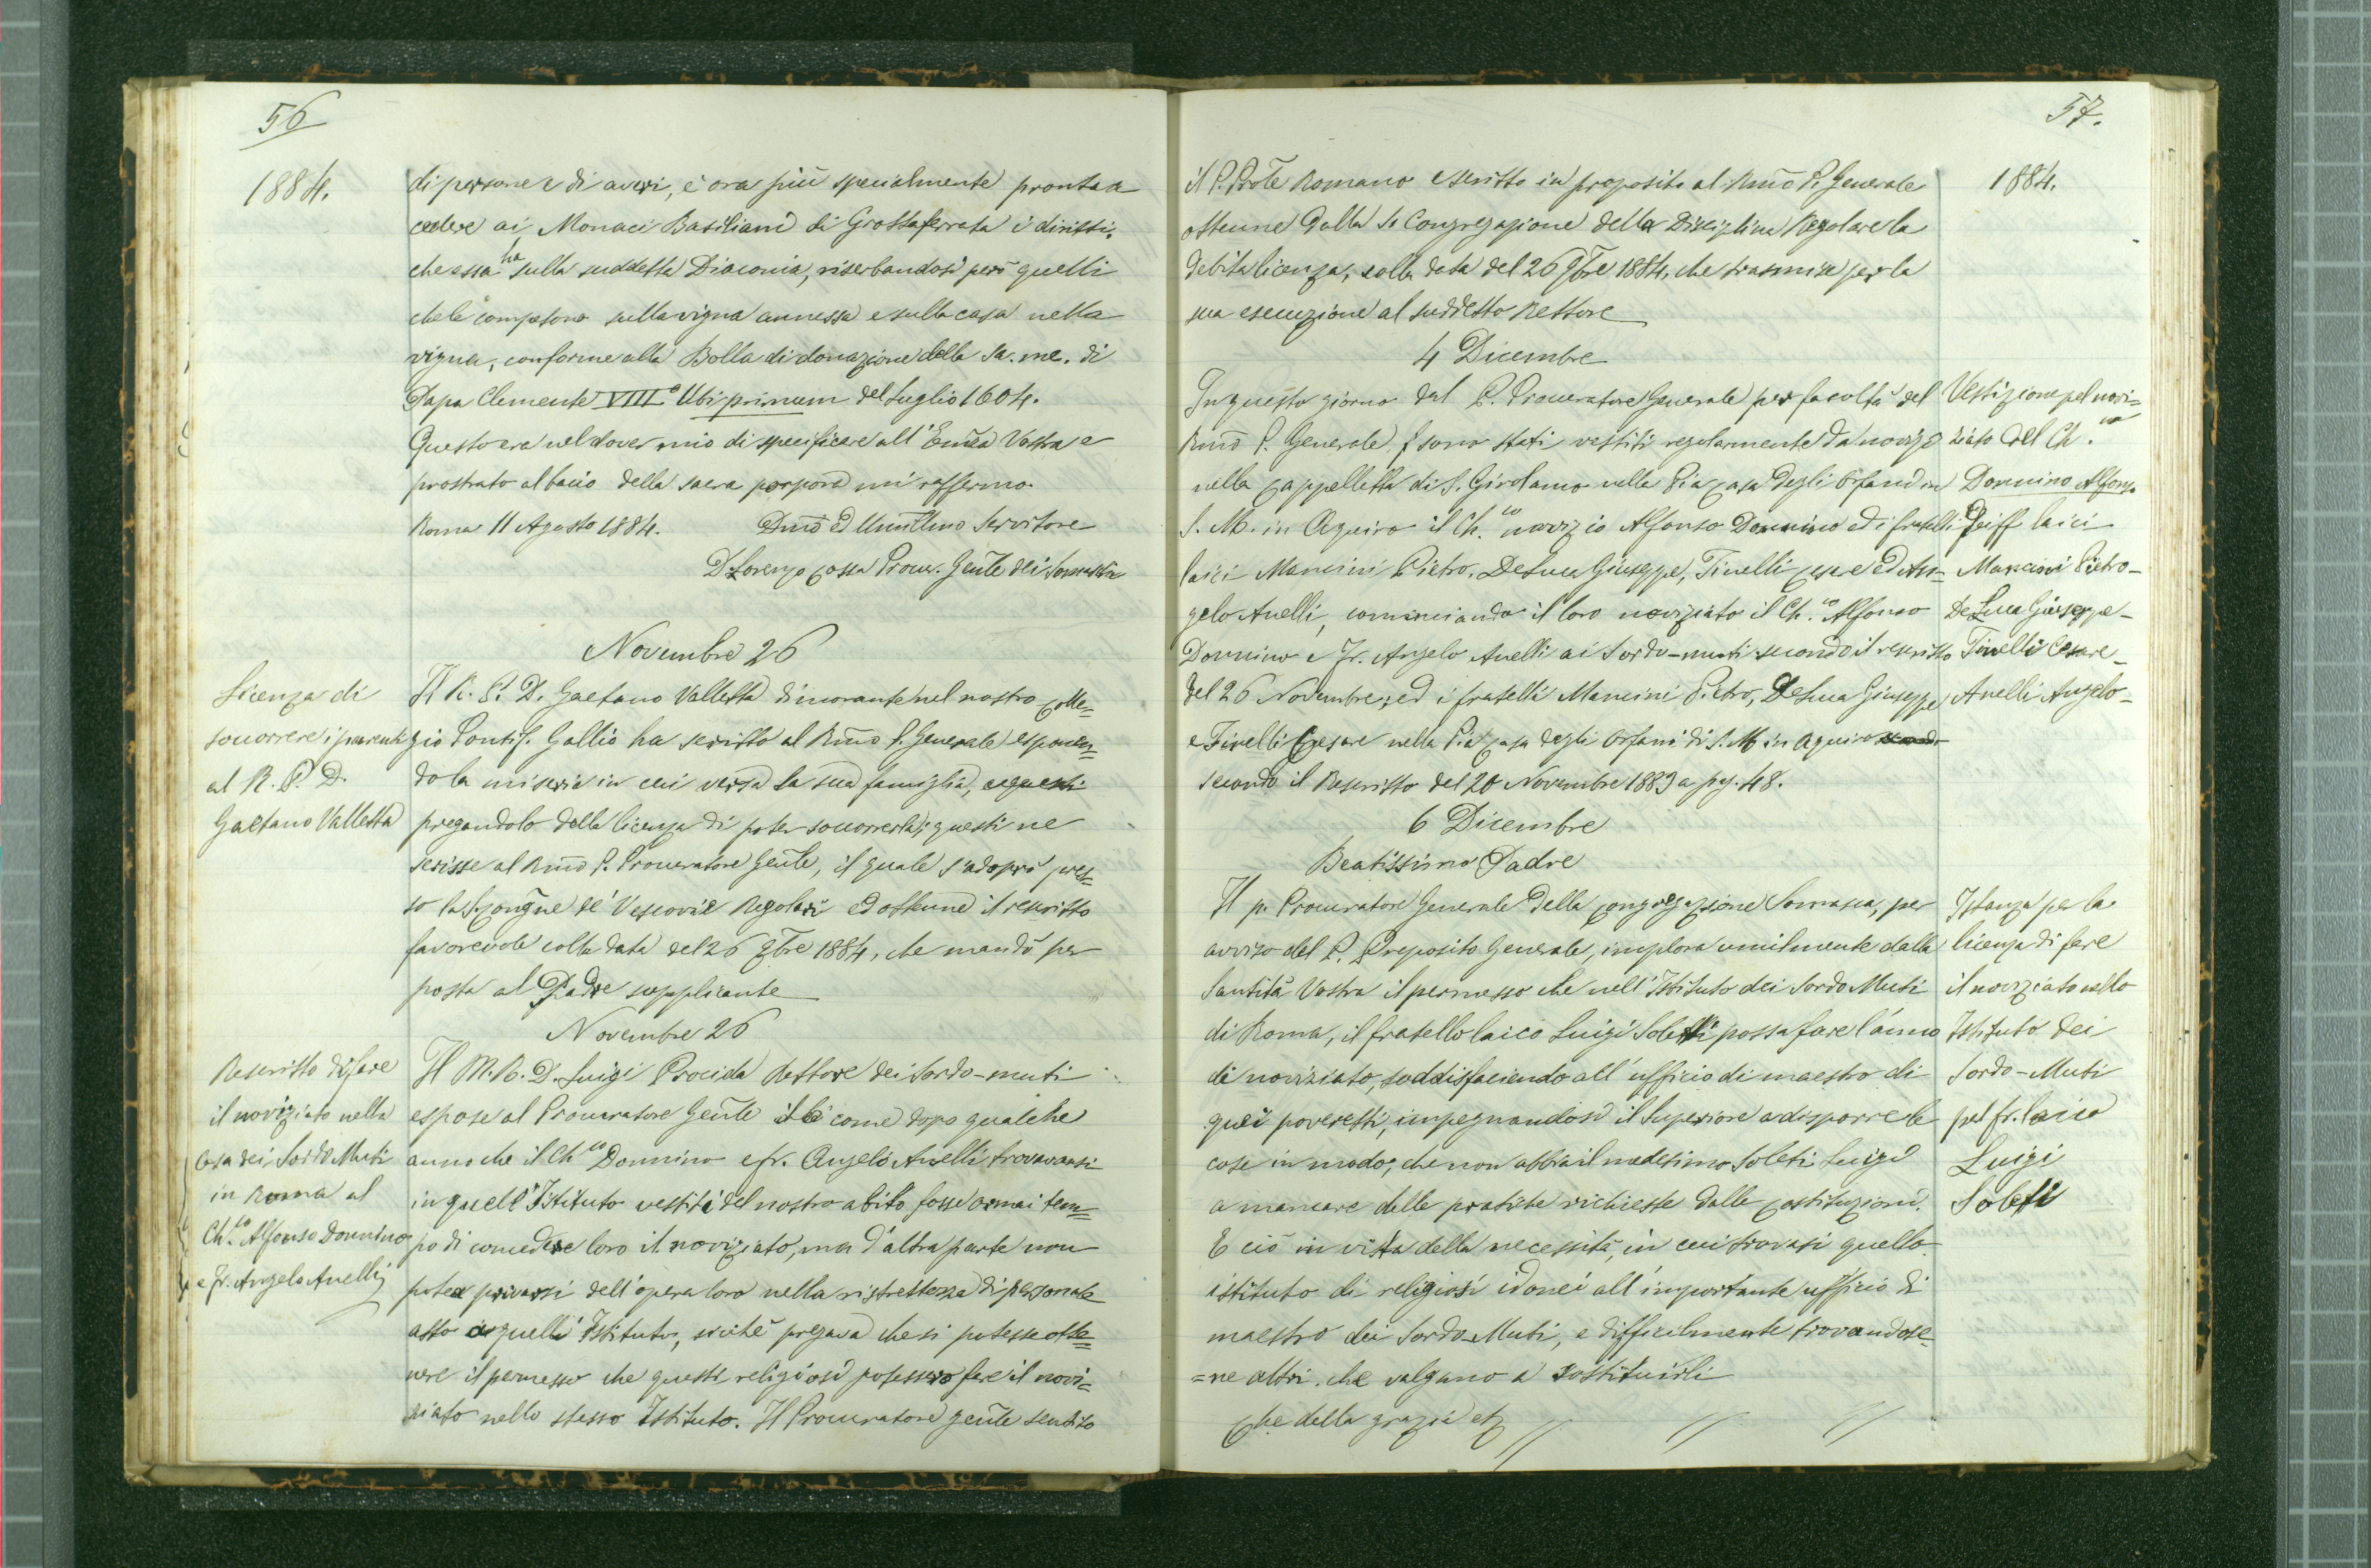 56
1884.
di persone e di averi, è ora più specialmente pronta a
cedere ai Monaci Basiliani di Grottaferrata i diritti,
che essa ha sulla suddetta Diaconia, riserbandosi però quelli
che le competono sulla vigna annessa e sulla casa nella
vigna, conforme alla Bolla di donazione della Sa. me. di
Papa Clemente VIII° Ubi primum del Luglio 1604.
Questo era nel dover mio di specificare all'Emža Vostra e
prostrato al bacio della sacra porpora mi raffermo.
Roma 11 Agosto 1884. Dmo ed Umillmo Servitore
D. Lorenzo Cossa Procur. Gente dei Somaschi
Novembre 26
Licenza di
soccorrere i parenti
al R. P. D.
Gaetano Valletta
Il R. P. D. Gaetano Valletta dimorante nel nostro Colle=
gio Pontif. Gallio ha scritto al Rmo P. Generale esponen=
do la miseria in cui versa la sua famiglia,
pregandolo della licenza di poter soccorrerla; questi ne
scrisse al Rmo P. Procuratore Gente, il quale s'adoprò pres=
so la S. Congne de' Vescovi e Regolari ed ottenne il rescritto
favorevole colla data del 26 9bre 1884, che mandò per
posta al Padre supplicante
Novembre 26
Rescritto di fare
il noviziato nella
Casa dei Sordo Muti
in Roma al
Ch.co Alfonso Donnino
e fr. Angelo Anelli
Il M. R. D. Luigi Procida Rettore dei Sordo-muti
espose al Procuratore Gente come dopo qualche
anno che il Ch.co Donnino e fr. Angelo Anelli trovavansi
in quell'Istituto vestiti del nostro abito fosse ormai tem=
po di concedere loro il noviziato, ma d'altra parte non
potea privarsi dell'opera loro nella ristrettezza di personale
atto a quell'Istituto, sicchè pregava che si potesse otte=
nere il permesso che questi religiosi potessero fare il novi=
ziato nello stesso Istituto. Il Procuratore gente sentito
57.
1884.
il P. Prole Romano e scritto in proposito al Rmo P. Generale
ottenne dalla S. Congregazione della Disciplina Regolare la
debita licenza, colla data del 26 9bre 1884, che trasmise per la
sua esecuzione al suddetto Rettore
4 Dicembre
In questo giorno dal P. Procuratore Generale per facoltà del
Rmo P. Generale sono stati vestiti regolarmente da novizi
nella Cappelletta di S. Girolamo nella Pia Casa degli Orfani in
S. M. in Aquiro il Ch.co novizio Alfonso Donnino ed i fratelli
laici Mancini Pietro, De Luca Giuseppe, Tinelli Cesare ed An=
gelo Anelli, cominciando il loro noviziato il Ch.co Alfonso
Donnino e Fr. Angelo Anelli ai Sordo-muti secondo il rescritto
del 26 Novembre, ed i fratelli Mancini Pietro, De Luca Giuseppe
e Tinelli Cesare nella Pia Casa degli Orfani di S. M. in Aquiro
secondo il Rescritto del 20 Novembre 1883 a pag. 48.
Vestizione pel novi=
ziato del Ch.co
Donnino Alfonso
e dei ff laici
Mancini Pietro -
De Luca Giuseppe -
Tinelli Cesare -
Anelli Angelo -
6 Dicembre
Beatissimo Padre
Il p. Procuratore Generale della Congregazione Somasca, per
avviso del P. Preposito Generale, implora umilmente dalla
Santità Vostra il permesso che nell'Istituto dei Sordo Muti
di Roma, il fratello laico Luigi Soleti possa fare l'anno
di noviziato, soddisfaciendo all'ufficio di maestro di
quei poveretti, impegnandosi il Superiore a disporre le
cose in modo, che non abbia il medesimo Soleti Luigi
a mancare delle pratiche richieste dalle Costituzioni.
E ciò in vista della necessità, in cui trovasi quello
istituto di religiosi idonei all'importante ufficio di
maestro dei Sordo-Muti, e difficilmente trovandose=
=ne altri che valgano a sostituirli
Che della grazia etc
Istanza per la
licenza di fare
il noviziato nello
Istituto dei
Sordo-Muti
pel fr. laico
Luigi
Soleti